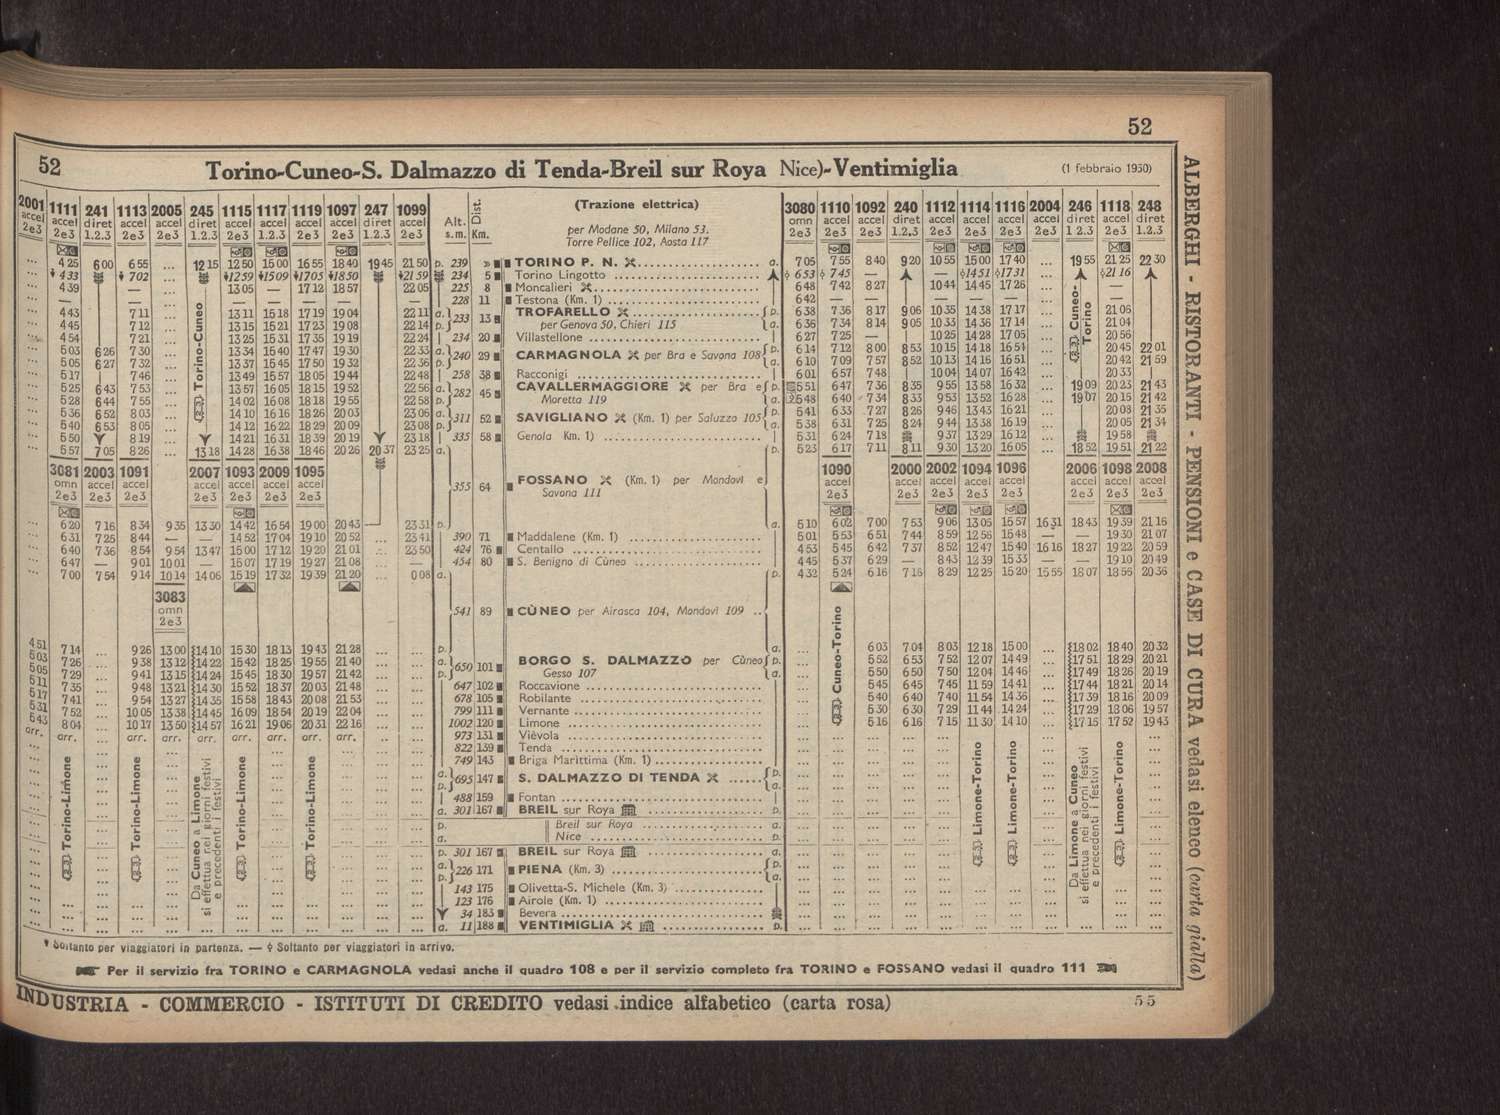 52
52 Torino-Cuneo-S. Dalmazzo di Tenda-Breil sur Roya Nice)-Ventimiglia (1 febbraio 1950)
2001 1111 241 1113 2005 245 1115 1117 1119 1097 247 1099 Alt. Dist. (Trazione elettrica) 3080 1110 1092 240 1112 1114 1116 2004 246 1118 248
accel accel diret accel accel diret accel accel accel accel diret accel s.m. Km. per Modane 50, Milano 53. omn accel accel diret accel accel accel accel diret accel diret
2e3 2e3 1.2.3 2e3 2e3 1.2.3 2e3 2e3 2e3 2e3 1.2.3 2e3 Torre Pellice 102, Aosta 117 2e3 2e3 2e3 1.2.3 2e3 2e3 2e3 2e3 1 2.3 2e3 1.2.3
... 4 25 6 00 6 55 ... 12 15 12 50 15 00 16 55 18 40 19 45 21 50 p. 239 » TORINO P. N. a. 7 05 7 55 8 40 9 20 10 55 15 00 17 40 ... 19 55 21 25 22 30
... 4 33 7 02 ... 12 59 15 09 17 05 18 50 21 59 234 5 Torino Lingotto 6 53 7 45 — — 14 51 17 31 ... 21 16
... 4 39 — ... 13 05 — 17 12 18 57 22 05 225 8 Moncalieri 6 48 7 42 8 27 10 44 14 45 17 26 ... —
... — — ... — — — — — 228 11 Testona (Km. 1) 6 42 — — — — — ... —
... 4 43 7 11 ... 13 11 15 18 17 19 19 04 22 11 a. 233 13 TROFARELLO p. 6 38 7 36 8 17 9 06 10 35 14 38 17 17 ... 21 06
... 4 45 7 12 ... 13 15 15 21 17 23 19 08 22 14 p. per Genova 50, Chieri 115 a. 6 36 7 34 8 14 9 05 10 33 14 36 17 14 ... 21 04
... 4 54 7 21 ... 13 25 15 31 17 35 19 19 22 24 234 20 Villastellone 6 27 7 25 — 10 25 14 28 17 05 ... 20 56
... 5 03 6 26 7 30 ... 13 34 15 40 17 47 19 30 22 33 a. 240 29 CARMAGNOLA per Bra e Savona 108 p. 6 14 7 12 8 00 8 53 10 15 14 18 16 54 ... 20 45 22 01
... 5 05 6 27 7 32 ... 13 37 15 45 17 50 19 32 22 36 p. a. 6 10 7 09 7 57 8 52 10 13 14 16 16 51 ... 20 42 21 59
... 5 17 7 46 ... 13 49 15 57 18 05 19 44 22 48 258 38 Racconigi 6 01 6 57 7 48 10 04 14 07 16 42 ... 20 33
... 5 25 6 43 7 53 ... 13 57 16 05 18 15 19 52 22 56 a. 282 45 CAVALLERMAGGIORE per Bra e p. 5 51 6 47 7 36 8 35 9 55 13 58 16 32 ... 19 09 20 23 21 43
... 5 28 6 44 7 55 ... 14 02 16 08 18 18 19 55 22 58 p. Moretta 119 a. 5 48 6 40 7 34 8 33 9 53 13 52 16 28 ... 19 07 20 15 21 42
... 5 36 6 52 8 03 ... 14 10 16 16 18 26 20 03 23 06 a. 311 52 SAVIGLIANO (Km. 1) per Saluzzo 105 p. 5 41 6 33 7 27 8 26 9 46 13 43 16 21 ... 20 08 21 35
... 5 40 6 53 8 05 ... 14 12 16 22 18 29 20 09 23 08 p. a. 5 38 6 31 7 25 8 24 9 44 13 38 16 19 ... 20 05 21 34
... 5 50 8 19 ... 14 21 16 31 18 39 20 19 23 18 335 58 Genola Km. 1) 5 31 6 24 7 18 9 37 13 29 16 12 ... 19 58
... 5 57 7 05 8 26 ... 13 18 14 28 16 38 18 46 20 26 20 37 23 25 a. p. 5 23 6 17 7 11 8 11 9 30 13 20 16 05 ... 18 52 19 51 21 22
3081 2003 1091 2007 1093 2009 1095 1090 2000 2002 1094 1096 2006 1098 2008
omn accel accel accel accel accel accel 355 64 FOSSANO (Km. 1) per Mondovì e accel accel accel accel accel accel accel accel
2e3 2e3 2e3 2e3 2e3 2e3 2e3 Savona 111 2e3 2e3 2e3 2e3 2e3 2e3 2e3 2e3
... 6 20 7 16 8 34 9 35 13 30 14 42 16 54 19 00 20 43 23 31 p. a. 5 10 6 02 7 00 7 53 9 06 13 05 15 57 16 31 18 43 19 39 21 16
... 6 31 7 25 8 44 — — 14 52 17 04 19 10 20 52 ... 23 41 390 71 Maddalene (Km. 1) 5 01 5 53 6 51 7 44 8 59 12 56 15 48 — — 19 30 21 07
... 6 40 7 36 8 54 9 54 13 47 15 00 17 12 19 20 21 01 ... 23 50 424 76 Centallo 4 53 5 45 6 42 7 37 8 52 12 47 15 40 16 16 18 27 19 22 20 59
... 6 47 — 9 01 10 01 — 15 07 17 19 19 27 21 08 ... — 454 80 S. Benigno di Cùneo 4 45 5 37 6 29 — 8 43 12 39 15 33 — — 19 10 20 49
... 7 00 7 54 9 14 10 14 14 06 15 19 17 32 19 39 21 20 ... 0 08 a. p. 4 32 5 24 6 16 7 16 8 29 12 25 15 20 15 55 18 07 18 56 20 36
3083
omn 541 89 CÙNEO per Airasca 104, Mondovì 109 ..
2e3
4 51 7 14 ... 9 26 13 00 14 10 15 30 18 13 19 43 21 28 ... ... p. a. ... 6 03 7 04 8 03 12 18 15 00 ... 18 02 18 40 20 32
5 03 7 26 ... 9 38 13 12 14 22 15 42 18 25 19 55 21 40 ... ... a. 650 101 BORGO S. DALMAZZO per Cùneo p. ... 5 52 6 53 7 52 12 07 14 49 ... 17 51 18 29 20 21
5 05 7 29 ... 9 41 13 15 14 24 15 45 18 30 19 57 21 42 ... ... p. Gesso 107 a. ... 5 50 6 50 7 50 12 04 14 46 ... 17 49 18 26 20 19
5 11 7 35 ... 9 48 13 21 14 30 15 52 18 37 20 03 21 48 ... ... 647 102 Roccavione ... 5 45 6 45 7 45 11 59 14 41 ... 17 44 18 21 20 14
5 17 7 41 ... 9 54 13 27 14 35 15 58 18 43 20 08 21 53 ... ... 678 105 Robilante ... 5 40 6 40 7 40 11 54 14 36 ... 17 39 18 16 20 09
5 31 7 52 ... 10 05 13 38 14 45 16 09 18 54 20 19 22 04 ... ... 799 111 Vernante ... 5 30 6 30 7 29 11 44 14 24 ... 17 29 18 06 19 57
5 43 8 04 ... 10 17 13 50 14 57 16 21 19 06 20 31 22 16 ... ... 1002 120 Limone ... 5 16 6 16 7 15 11 30 14 10 ... 17 15 17 52 19 43
arr. arr. ... arr. arr. arr. arr. arr. arr. arr. .. ... 973 131 Vièvola
822 139 Tenda
749 143 Briga Marìttima (Km. 1)
a. p. 695 147 S. DALMAZZO DI TENDA p. a.
488 159 Fontan
a. 301 167 BREIL sur Roya p.
p. Breil sur Roya a.
a. Nice p.
p. 301 167 BREIL sur Roya a.
a. p. 226 171 PIENA (Km. 3) p. a.
143 175 Olivetta-S. Michele (Km. 3)
123 176 Airole (Km. 1)
34 183 Bevera
a. 11 188 VENTIMIGLIA p.
Torino-Cuneo
Torino-Limone
Torino-Limone
Da Cuneo a Limone
si effettua nei giorni festivi
e precedenti i festivi
Torino-Limone
Torino-Limone
Cuneo-Torino
Limone-Torino
Limone-Torino
Cuneo-
Torino
Da Limone a Cuneo
si effettua nei giorni festivi
e precedenti i festivi
Limone-Torino
Soltanto per viaggiatori in partenza. — Soltanto per viaggiatori in arrivo.
Per il servizio fra TORINO e CARMAGNOLA vedasi anche il quadro 108 e per il servizio completo fra TORINO e FOSSANO vedasi il quadro 111
INDUSTRIA - COMMERCIO - ISTITUTI DI CREDITO vedasi indice alfabetico (carta rosa)
55
ALBERGHI - RISTORANTI - PENSIONI e CASE DI CURA vedasi elenco (carta gialla)